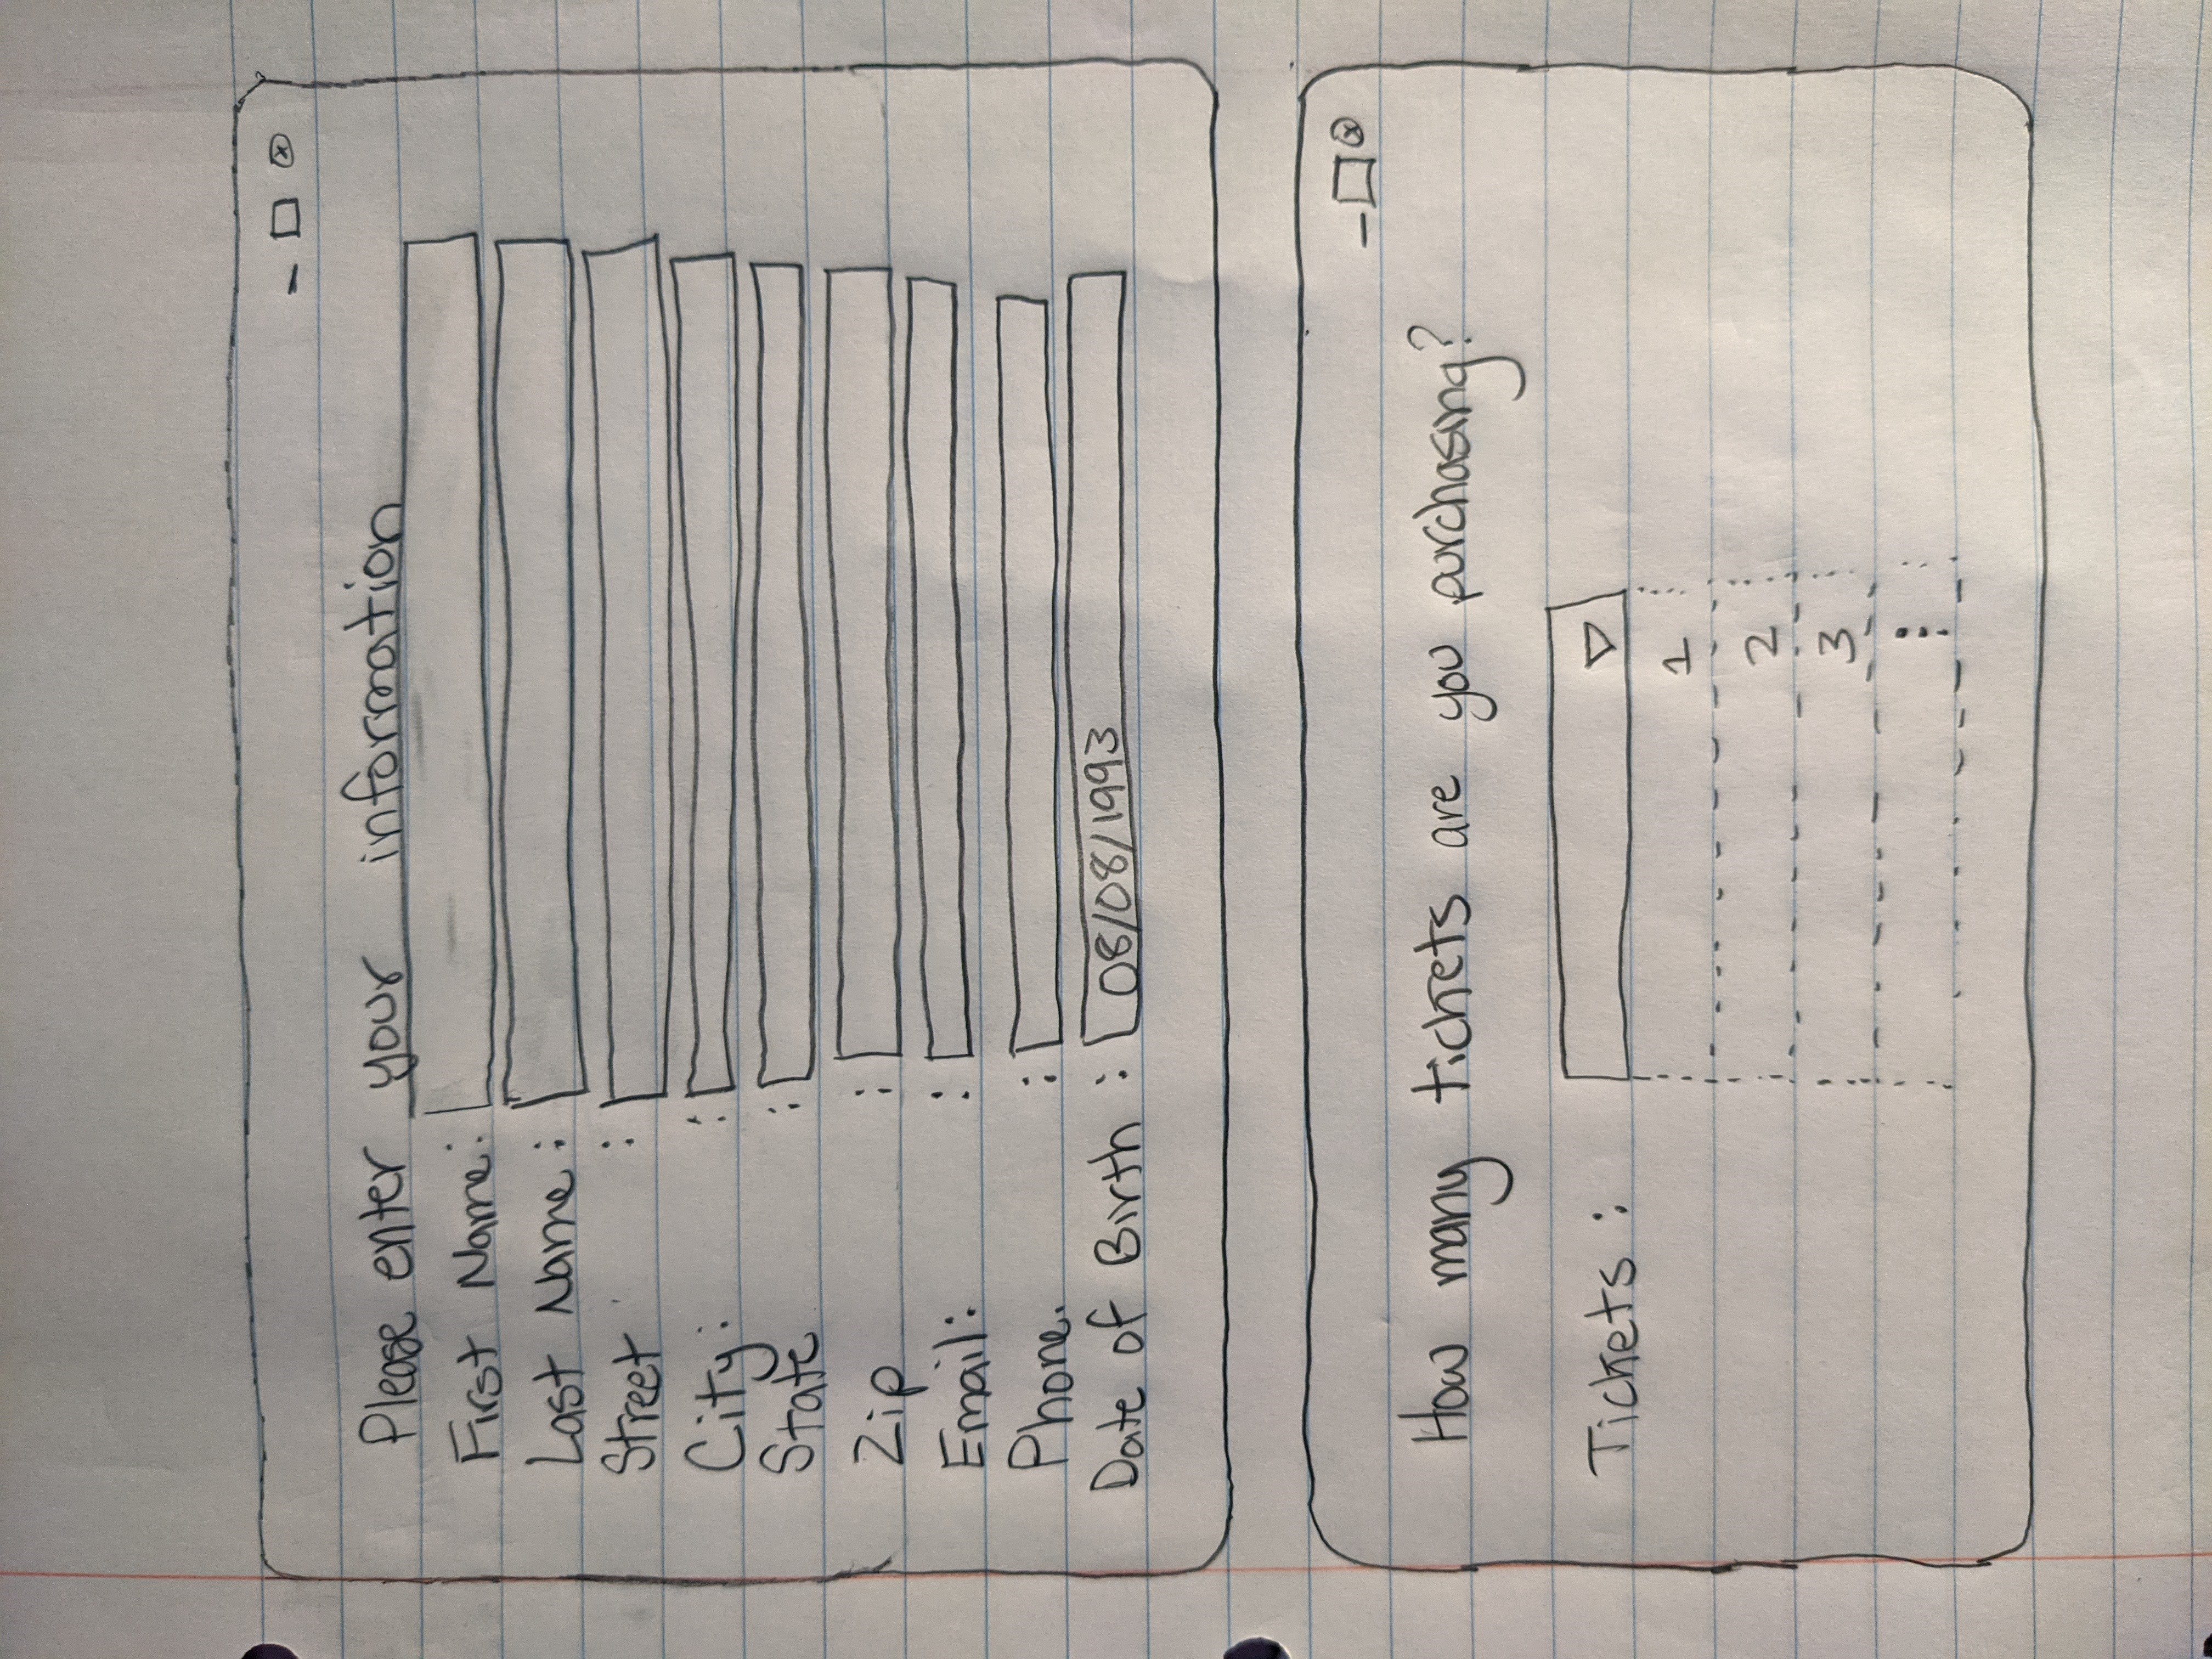 Please enter your information
First Name:
Last Name:
Street :
City: :
State :
Zip :
Email: :
Phone. :
Date of Birth : 08/08/1993
How many tickets are you purchasing?
Tickets :
1
2
3
⋮